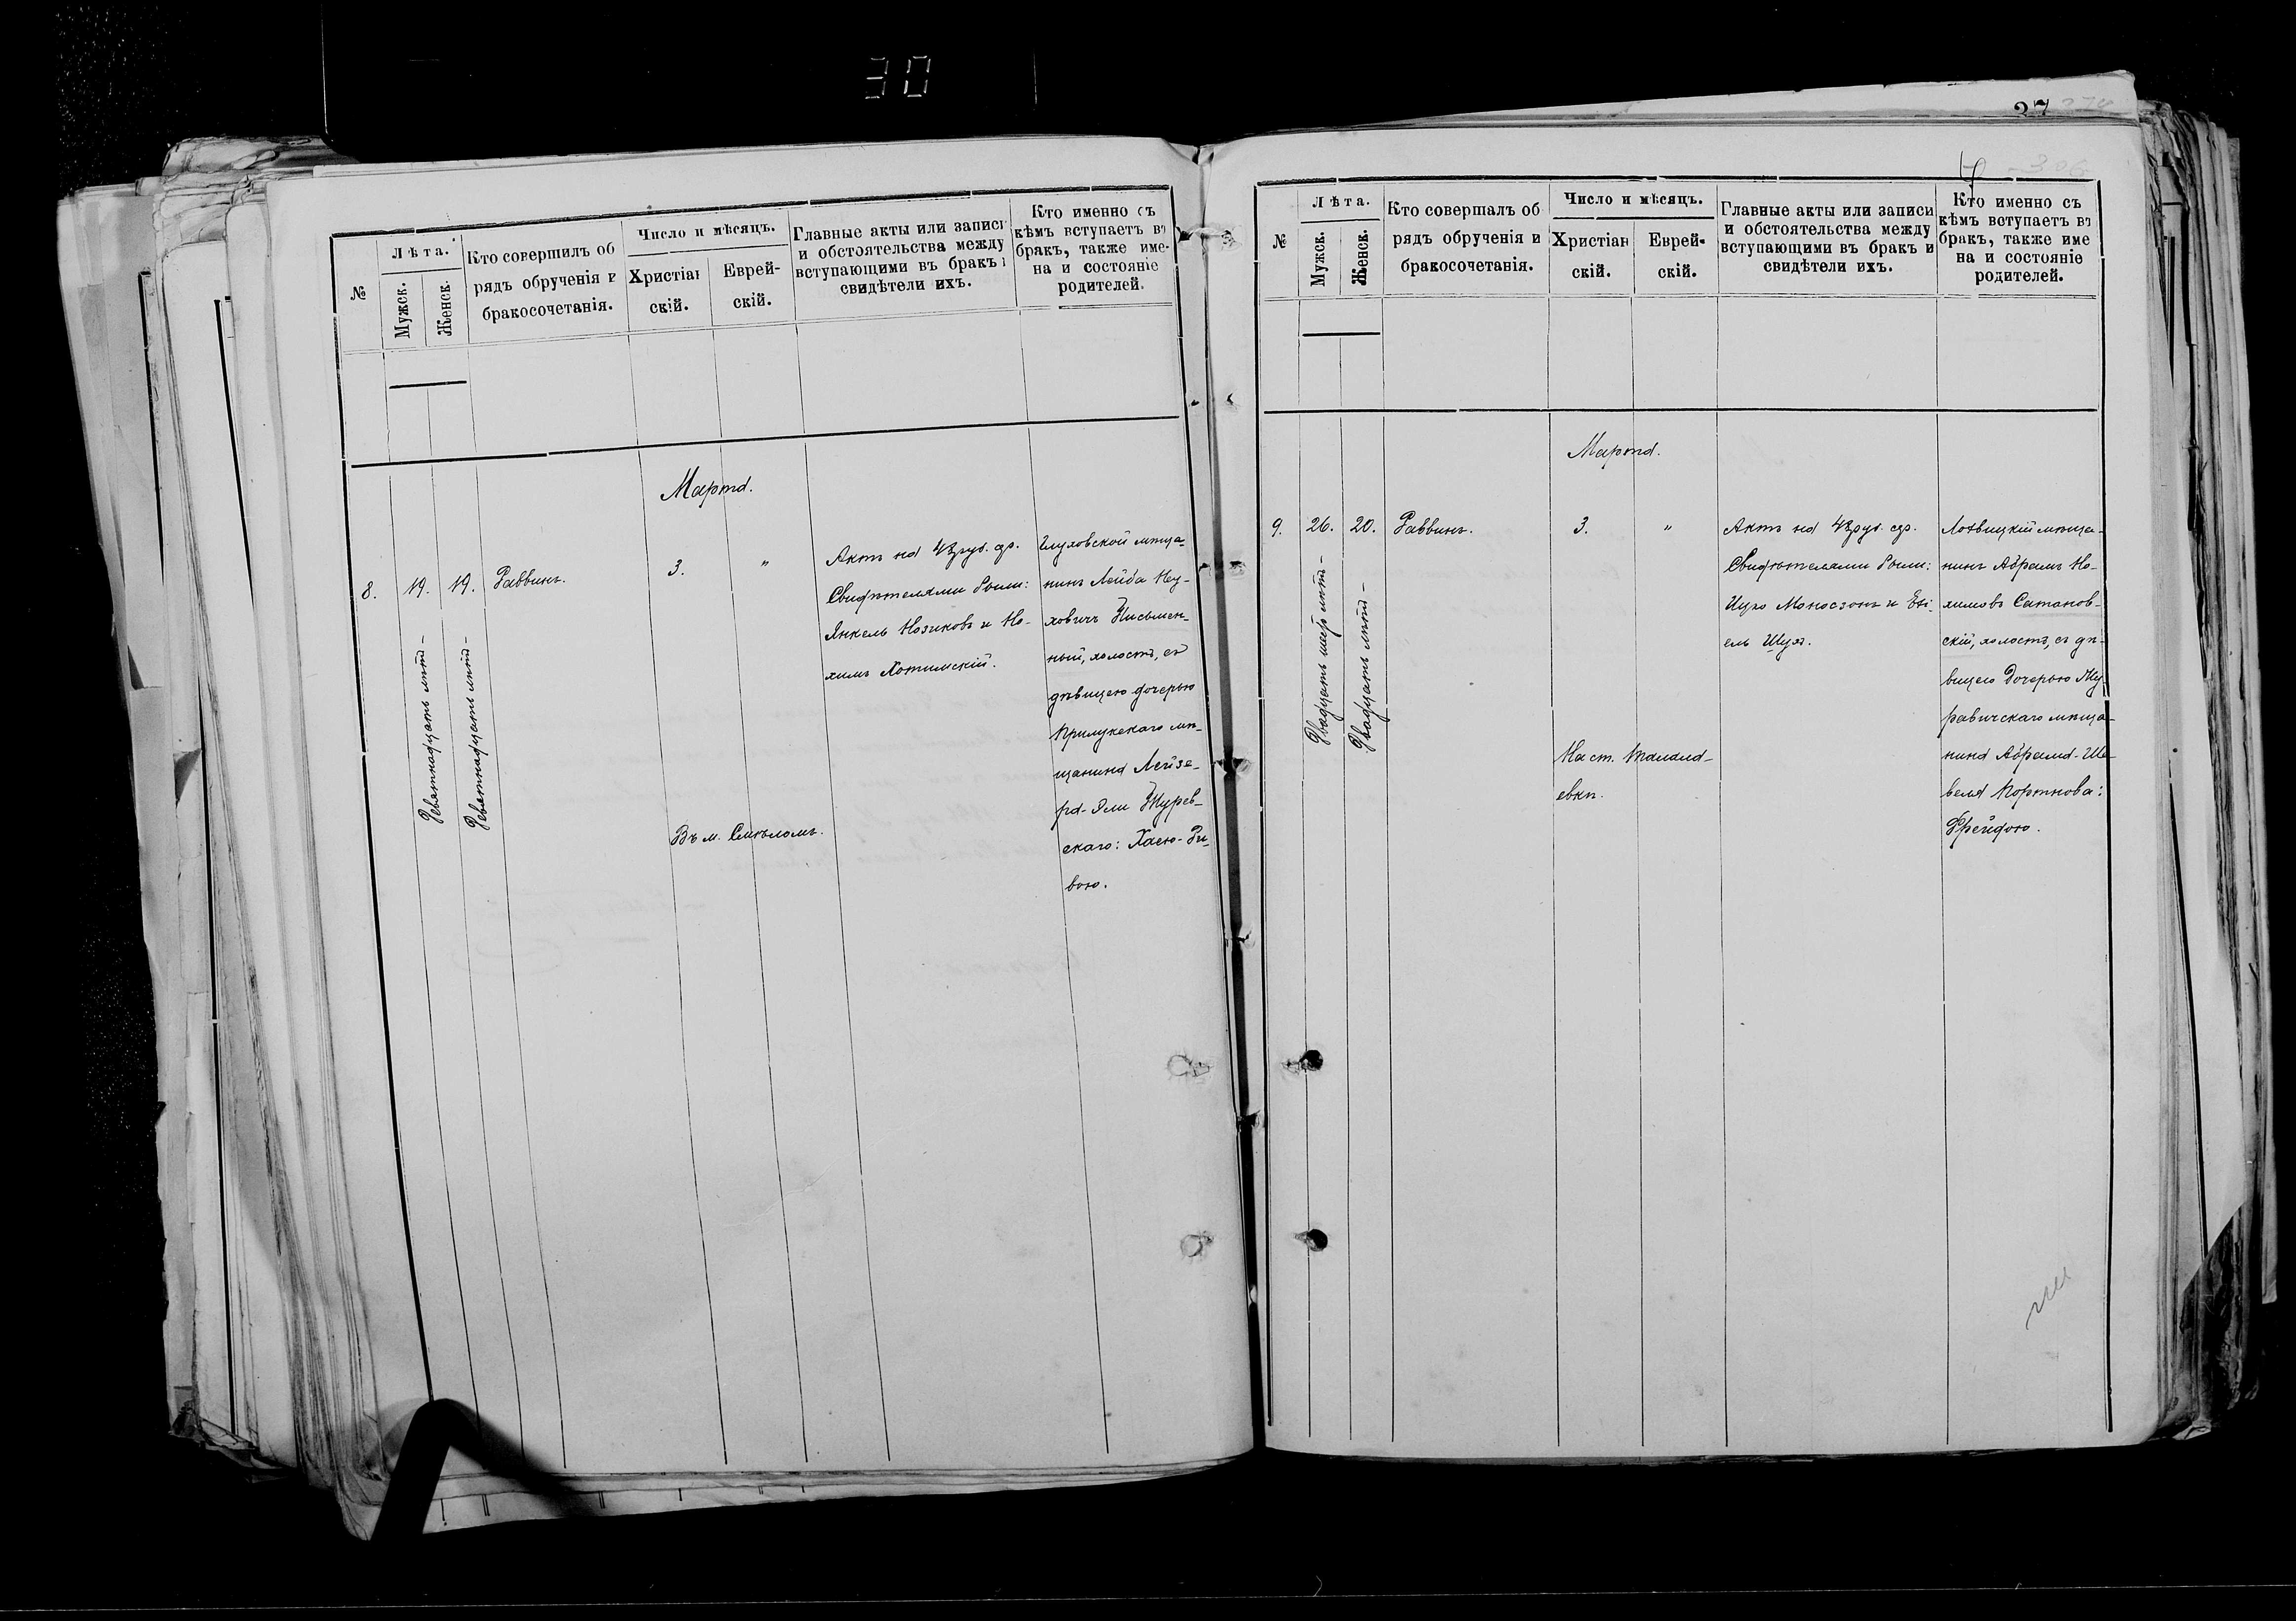 30
№
Лѣта.
Мужск.
Женск.
Кто совершилъ об
рядъ обрученія и
бракосочетанія.
Число и мѣсяцъ.
Христіан
скій.
Еврей-
скій.
Главные акты или записи
и обстоятельства между
вступающими въ бракъ и
свидѣтели ихъ.
Кто именно съ
кѣмъ вступаетъ въ
бракъ, также име-
на и состояніе
родителей.
Марта.
8.
19.
19.
Девятнадцать лѣтъ
Девятнадцать лѣтъ
Раввинъ.
3.
"
Въ м. Смѣломъ.
Актъ на 48 руб. ср.
Свидѣтелями были:
Янкель Новиковъ и Но-
химъ Хотимскій.
Глуховской мѣща-
нинъ Лейба Неу-
ховичъ Письмен-
ный, холостъ, съ
дѣвицею дочерью
Прилукскаго мѣ-
щанина Лейзе-
ра-Эли Журав-
скаго: Хаею-Ри-
вою.
37
306
№
Лѣта.
Мужск.
Женск.
Кто совершалъ об
рядъ обрученія и
бракосочетанія.
Число и мѣсяцъ.
Христіан
скій.
Еврей-
скій.
Главные акты или записи
и обстоятельства между
вступающими въ бракъ и
свидѣтели ихъ.
Кто именно съ
кѣмъ вступаетъ въ
бракъ, также име
на и состояніе
родителей.
Марта.
9.
26.
20.
Двадцать шесть лѣтъ
Двадцать лѣтъ
Раввинъ.
3.
"
На ст. Талала-
евкѣ.
Актъ на 48 руб. ср.
Свидѣтелями были:
Ицко Моносзонъ и Ехі-
ель Шуя.
Лохвицкій мѣща-
нинъ Абрамъ Но-
химовъ Сатанов-
скій, холостъ, съ дѣ-
вицею дочерью Жу-
равичскаго мѣща-
нина Абрама-Ше-
веля Портнова:
Фрейдою.